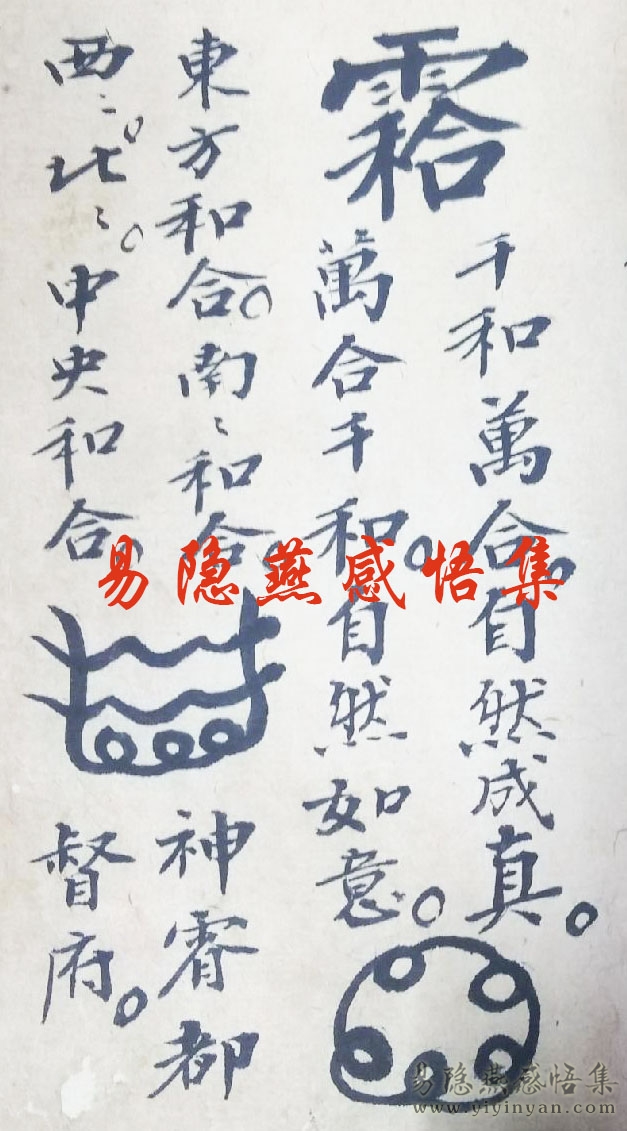 千和萬合。自然成真。
萬合千和。自然如意。
東方和合。南〻和合。
西〻。北〻。中央和合。
神霄都
督府。
易隐燕感悟集
易隐燕感悟集
www.yiyinyan.com